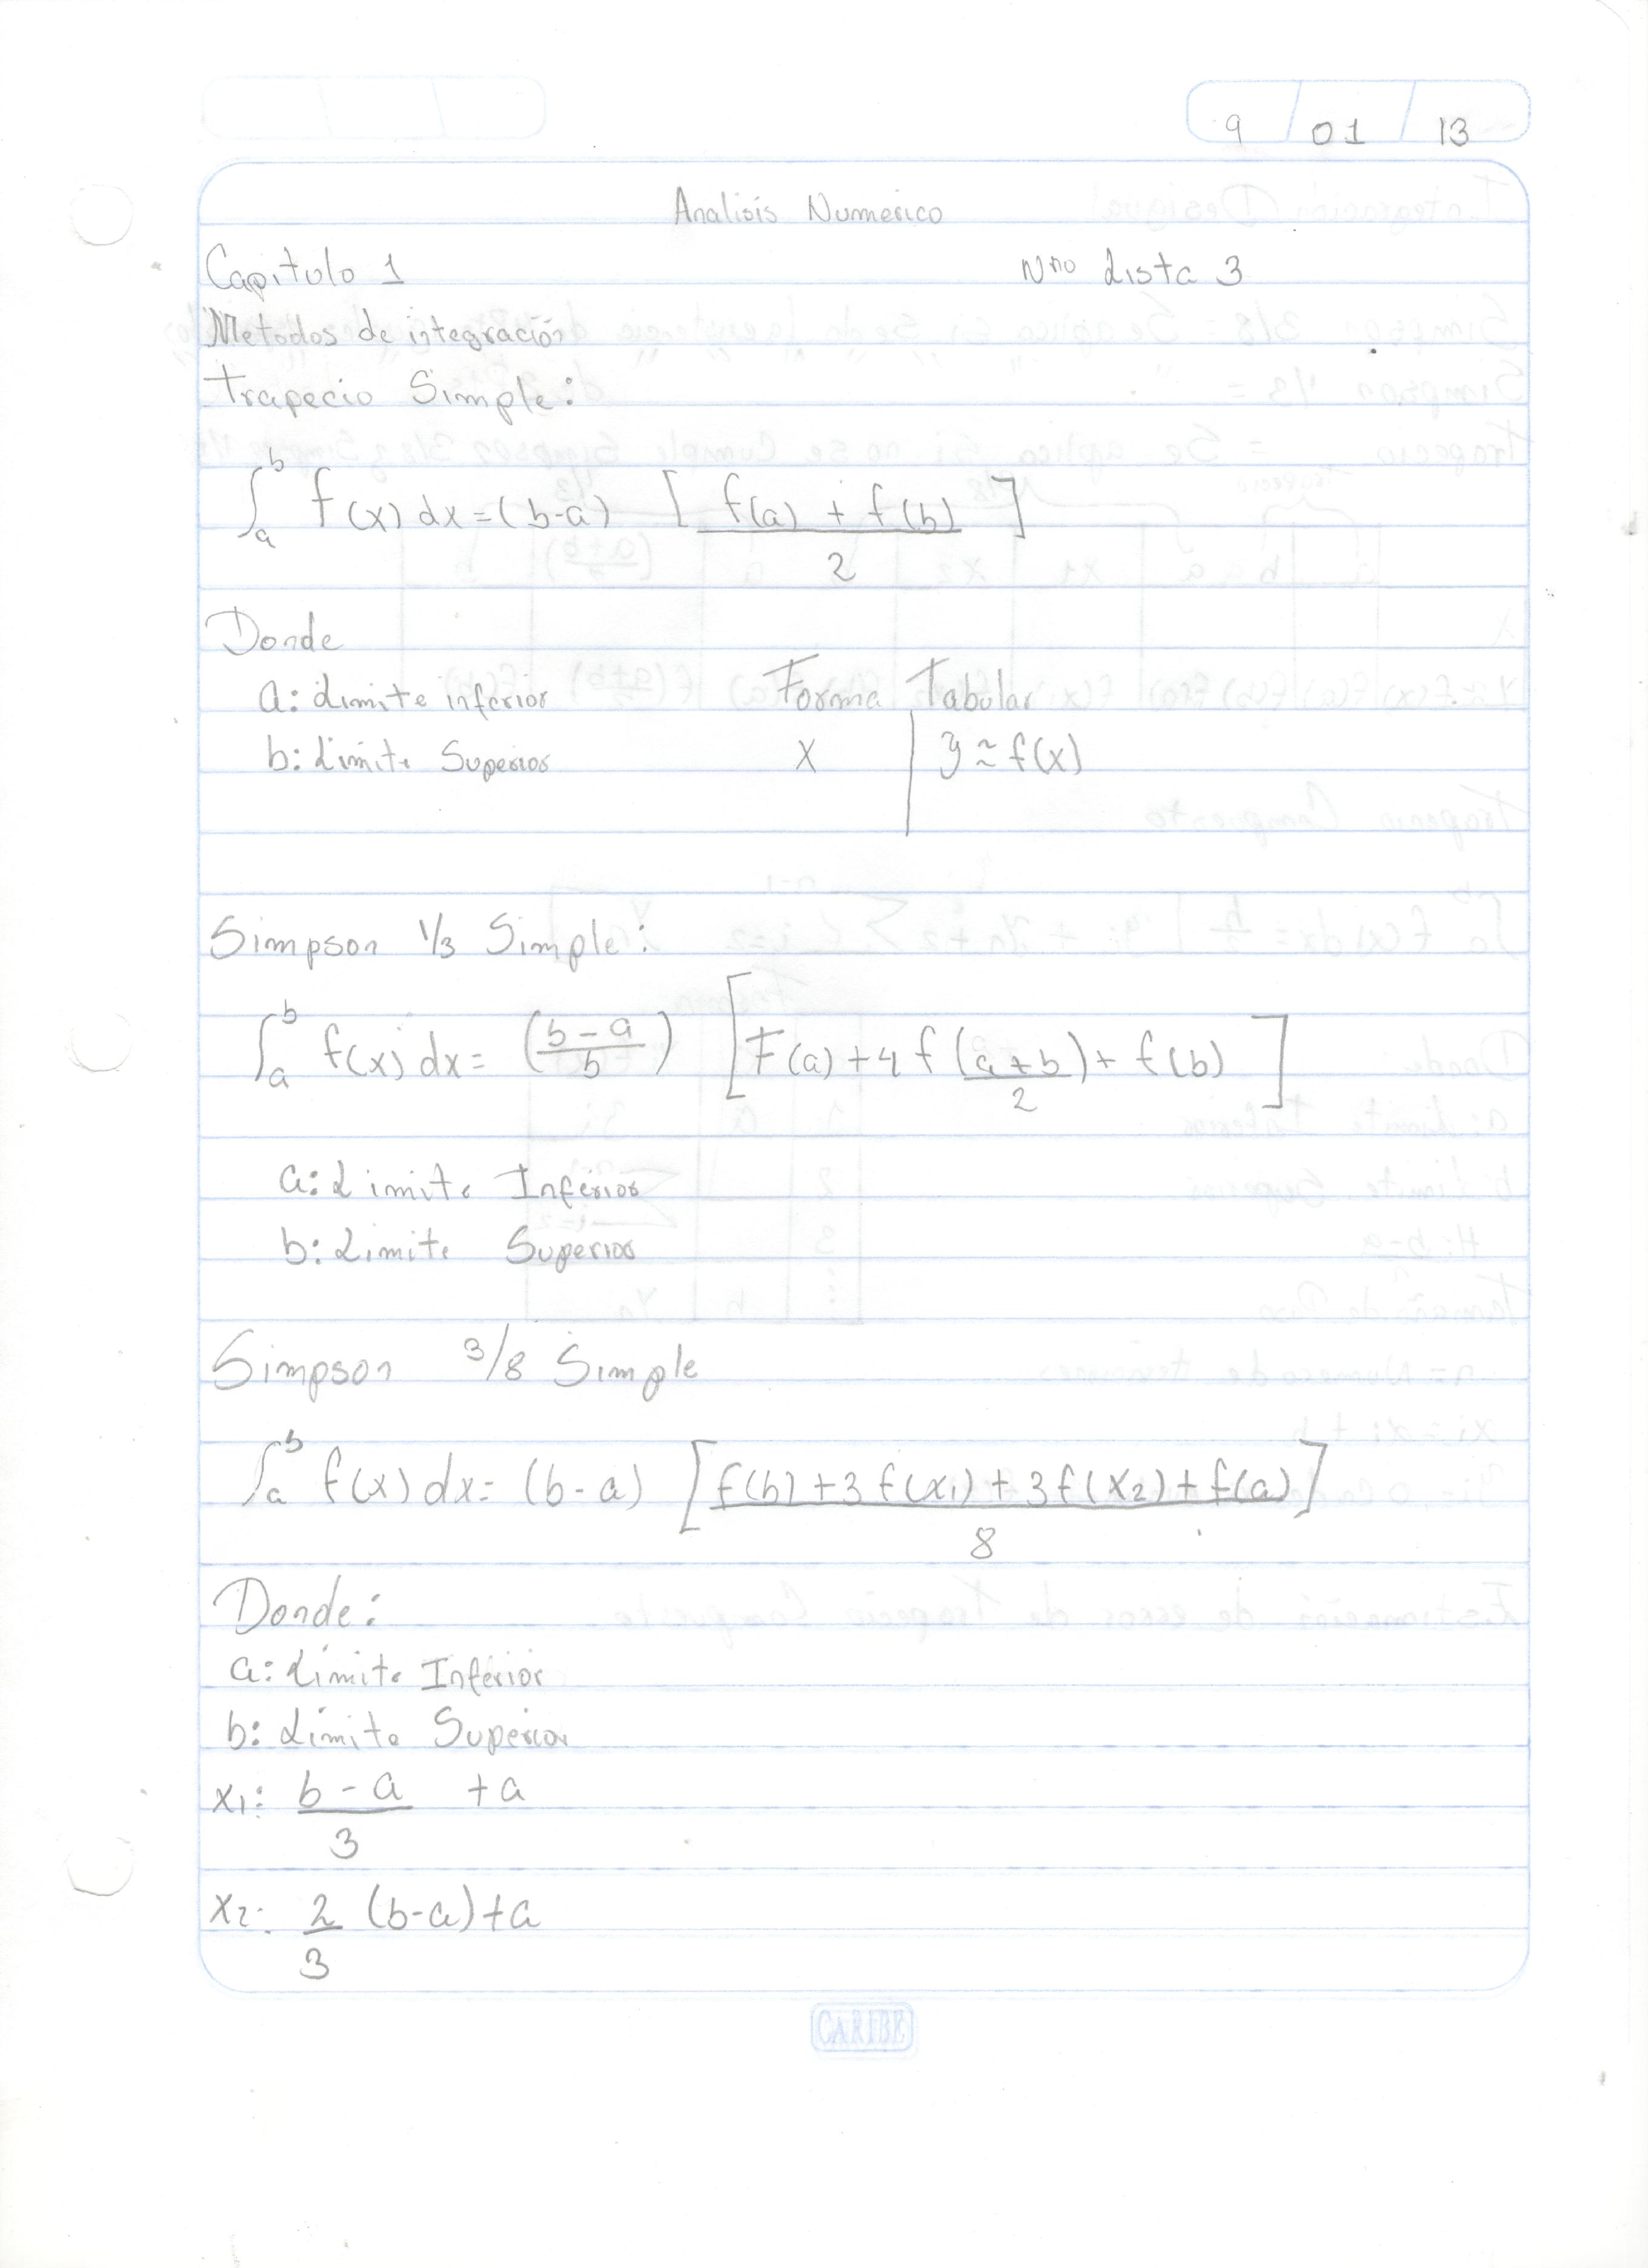 9 / 01 / 13
Analisis Numerico
Capitulo 1 Nro Lista 3
Metodos de integración
trapecio Simple:
∫_a^b f(x) dx = (b-a) [ (f(a) + f(b)) / 2 ]
Donde
a: Limite inferior Forma Tabular
b: Limite Superior X | y ≈ f(x)
Simpson 1/3 Simple:
∫_a^b f(x) dx = ((b-a) / b) [ F(a) + 4 f((a+b) / 2) + f(b) ]
a: Limite Inferior
b: Limite Superior
Simpson 3/8 Simple
∫_a^b f(x) dx = (b-a) [ (f(b) + 3 f(x1) + 3 f(x2) + f(a)) / 8 ]
Donde:
a: Limite Inferior
b: Limite Superior
x1: (b-a) / 3 + a
x2: 2/3 (b-a) + a
CARIBE